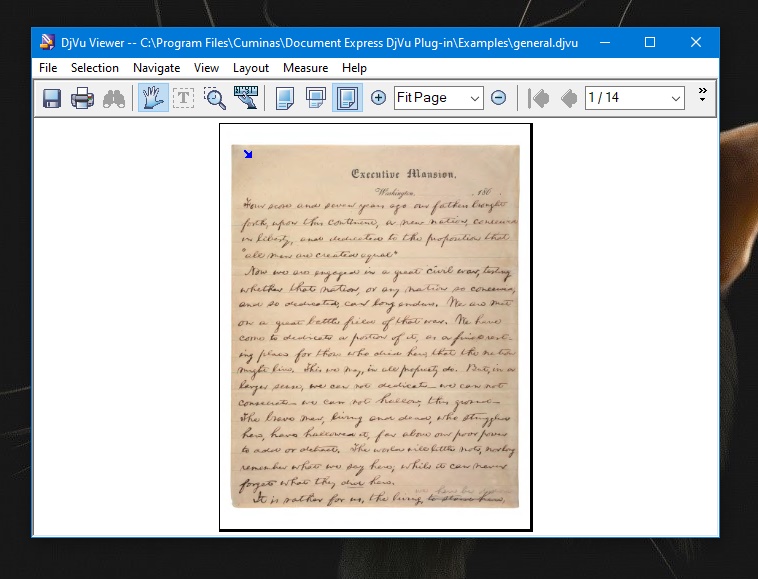 DjVu Viewer -- C:\Program Files\Cuminas\Document Express DjVu Plug-in\Examples\general.djvu
File Selection Navigate View Layout Measure Help
T Fit Page 1 / 14 »
Executive Mansion,
Washington, , 186 .
Four score and seven years ago our fathers brought
forth, upon this continent, a new nation, conceived
in liberty, and dedicated to the proposition that
"all men are created equal"
Now we are engaged in a great civil war, testing
whether that nation, or any nation so conceived,
and so dedicated, can long endure. We are met
on a great battle field of that war. We have
come to dedicate a portion of it, as a final rest-
ing place for those who died here, that the nation
might live. This we may, in all propriety do. But, in a
larger sense, we can not dedicate we can not
consecrate we can not hallow, this ground
The brave men, living and dead, who struggled
here, have hallowed it, far above our poor power
to add or detract. The world will little note, nor long
remember what we say here; while it can never
forget what they did here.
It is rather for us, the living, to stand here,